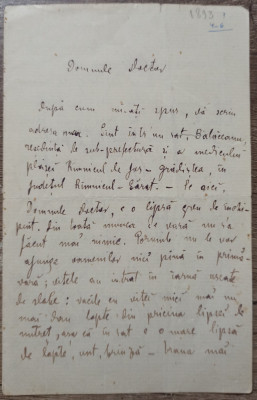 1893
Domnule Doctor
După cum mi-ați spus, vă scriu
adresa mea. Sunt într'un sat, Balăceanu,
reședință de sub-prefectură și a medicului
plășei Rîmnicul de jos - Grădiștea, în
județul Rîmnicul-Sărat. - Pe aici,
Domnule Doctor, e o lipsă greu de închi-
puit. Din toată munca de vară nu s'a
făcut mai nimic. Porumb nu le vor
ajunge oamenilor nici pînă în primă-
vară; vitele au intrat în iarnă uscate
de slabe; vacile cu viței mici mai nu
mai dau lapte din pricina lipsei de
nutreț, așa că în sat e o mare lipsă
de lapte, unt, brînză - hrana mai